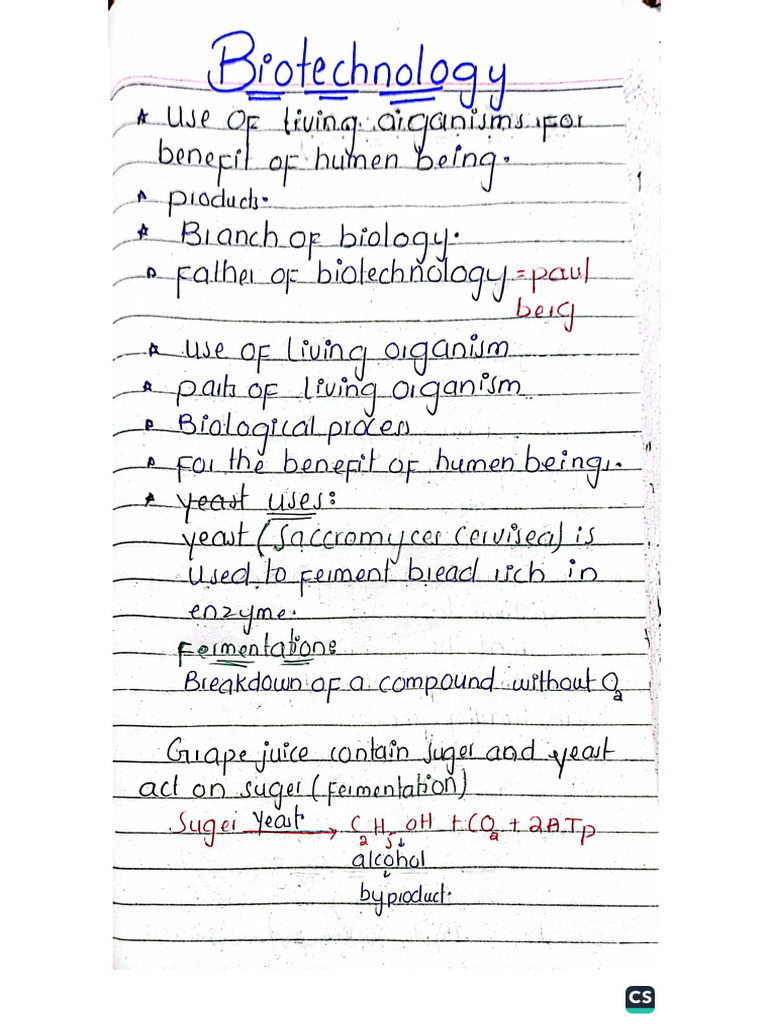 Biotechnology
* Use of living organisms for
benefit of humen being.
* products.
* Branch of biology.
* Father of biotechnology = paul
berg
* use of living organism
* parts of living organism
* Biological process
* for the benefit of humen being.
* yeast uses:
yeast (Saccromyces Cervisea) is
used to ferment bread rich in
enzyme.
Fermentation:
Breakdown of a compound without O₂
Grape juice contain suger and yeast
act on suger (fermentation)
Suger yeast → C₂H₅OH + CO₂ + 2ATP
↓
alcohol
↓
byproduct.
CS